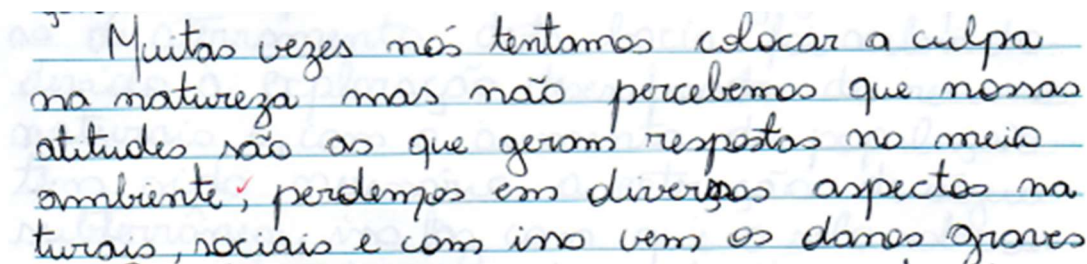 Muitas vezes nós tentamos colocar a culpa
na natureza mas não percebemos que nossas
atitudes são as que geram respostas no meio
ambiente, perdemos em diversos aspectos na
turais, sociais e com isso vem os danos graves